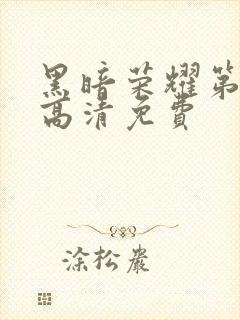 黑暗荣耀第
高清免费
涂松岩